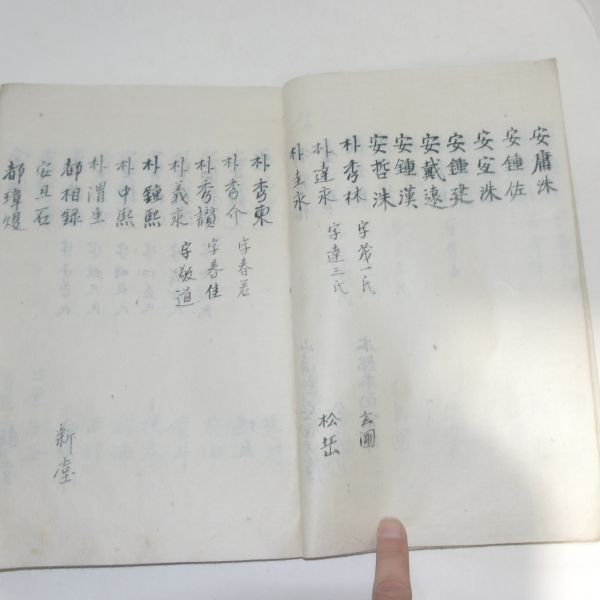 安庸洙
安鍾佐
安宖洙
安鍾建
安戴遠
安鍾漢
安哲洙
朴秀林 字常一氏 玄圃
朴達永 字達三氏 松岳
朴圭永
朴秀東
朴秀介 字春若
朴秀讚 字春佳
朴義永 字敬道
朴鍾熙
朴中熙
朴渭圭
都相錄 新堂
安且石
都璋煖